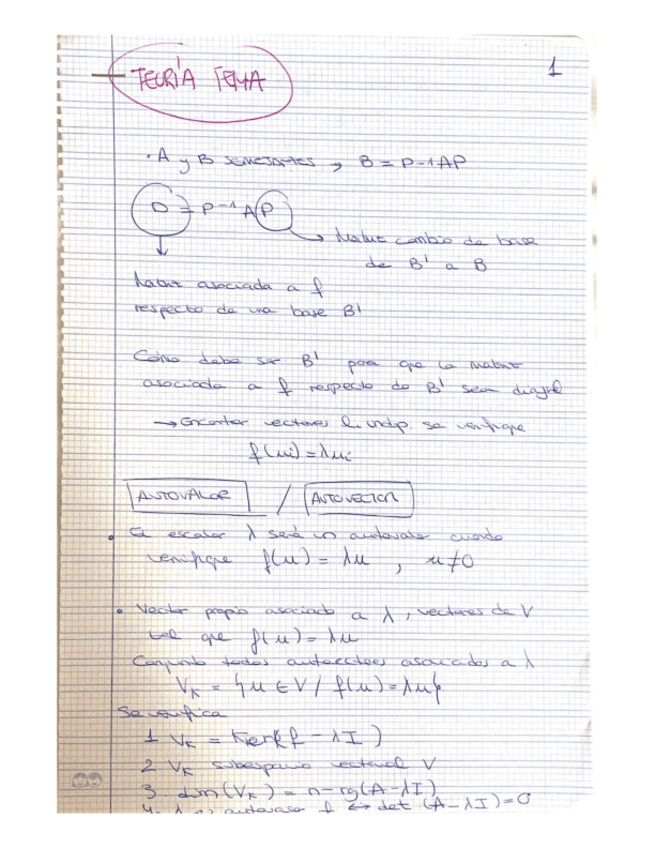 TEORÍA TEMA
1
· A y B SEMEJANTES → B = P-1AP
D = P-1 A P
→ Matriz cambio de base
de B' a B
Matriz asociada a f
respecto de una base B'
Cómo debe ser B' para que la matriz
asociada a f respecto de B' sea diagnl
→ Encontrar vectores l. indp se verifique
f(ui) = λui
AUTOVALOR / AUTOVECTOR
• El escalar λ será un autovalor cuando
verifique f(u) = λu , u≠0
• Vector propio asociado a λ, vectores de V
tal que f(u) = λu
Conjunto todos autovectores asociados a λ
VK = {u ∈ V / f(u) = λu}
Se verifica
1 VK = Ker(f - λI)
2 VK subespacio vectorial V
3. dim(VK) = n-rg(A-λI)
4. λ es autovalor f ↔ det (A-λI)=0